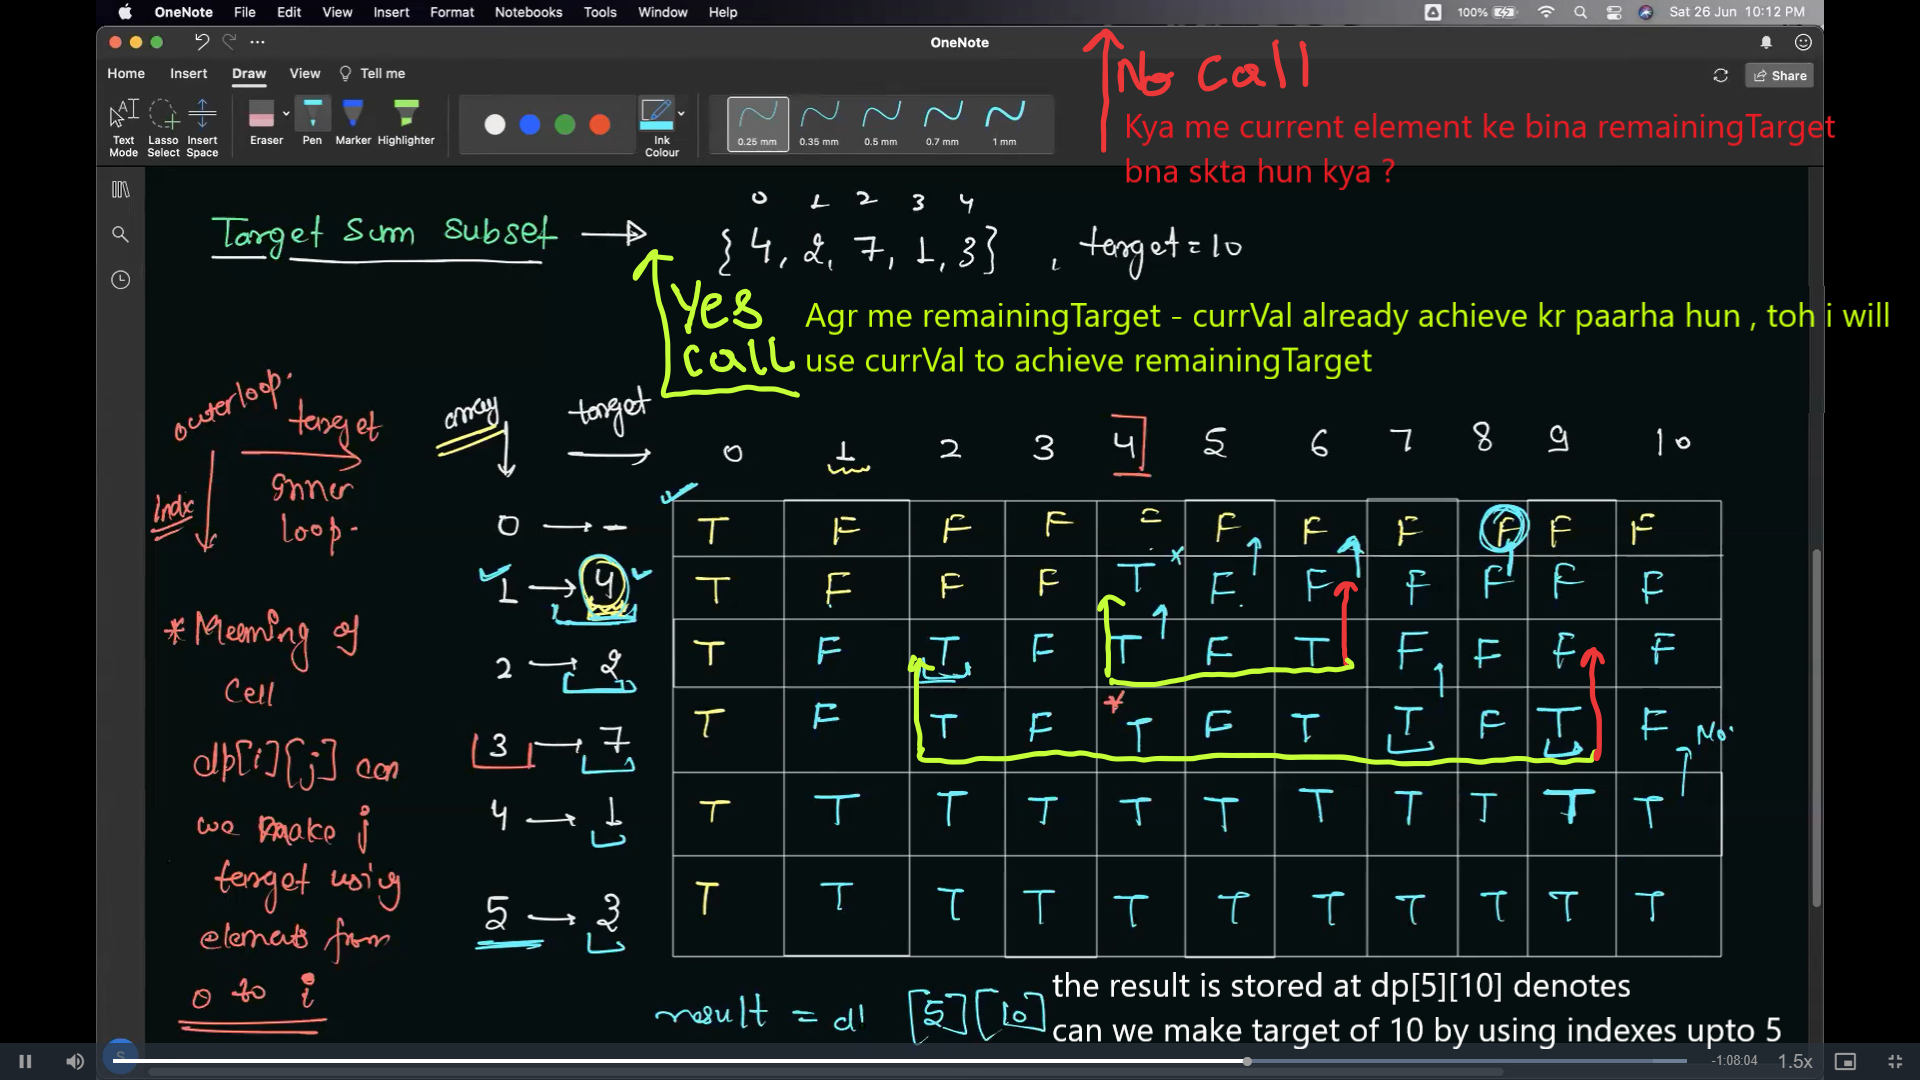 OneNote File Edit View Insert Format Notebooks Tools Window Help 100% Sat 26 Jun 10:12 PM
OneNote
Home Insert Draw View Tell me
Share
Text Mode Lasso Select Insert Space Eraser Pen Marker Highlighter Ink Colour
0.25 mm 0.35 mm 0.5 mm 0.7 mm 1 mm
No Call
Kya me current element ke bina remainingTarget
bna skta hun kya ?
0 1 2 3 4
Target Sum Subset → {4, 2, 7, 1, 3} , target = 10
Yes
Call
Agr me remainingTarget - currVal already achieve kr paarha hun , toh i will
use currVal to achieve remainingTarget
outerloop. target
Inner
loop.
Indx
array target
0 1 2 3 4 5 6 7 8 9 10
0 → - T F F F F F F F F F F
1 → 4 T F F F T F F F F F F
2 → 2 T F T F T F T F F F F
3 → 7 T F T F T F T T F T F No.
4 → 1 T T T T T T T T T T T
5 → 3 T T T T T T T T T T T
* Meaning of
Cell
dp[i][j] can
we make j
target using
elements from
0 to i
result = d [5][10]
the result is stored at dp[5][10] denotes
can we make target of 10 by using indexes upto 5
S
-1:08:04 1.5x